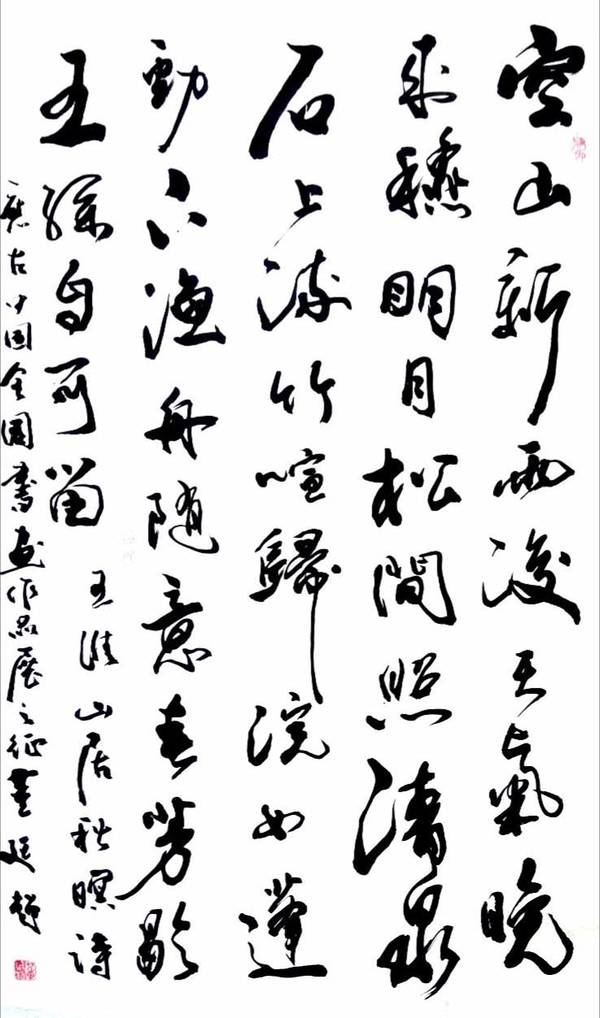 空山新雨後天氣晚
来穐明月松間照清泉
石上流竹喧歸浣女蓮
動下漁舟随意春芳歇
王孫自可留
王維山居秋暝詩
應中国全国書画作品展之征